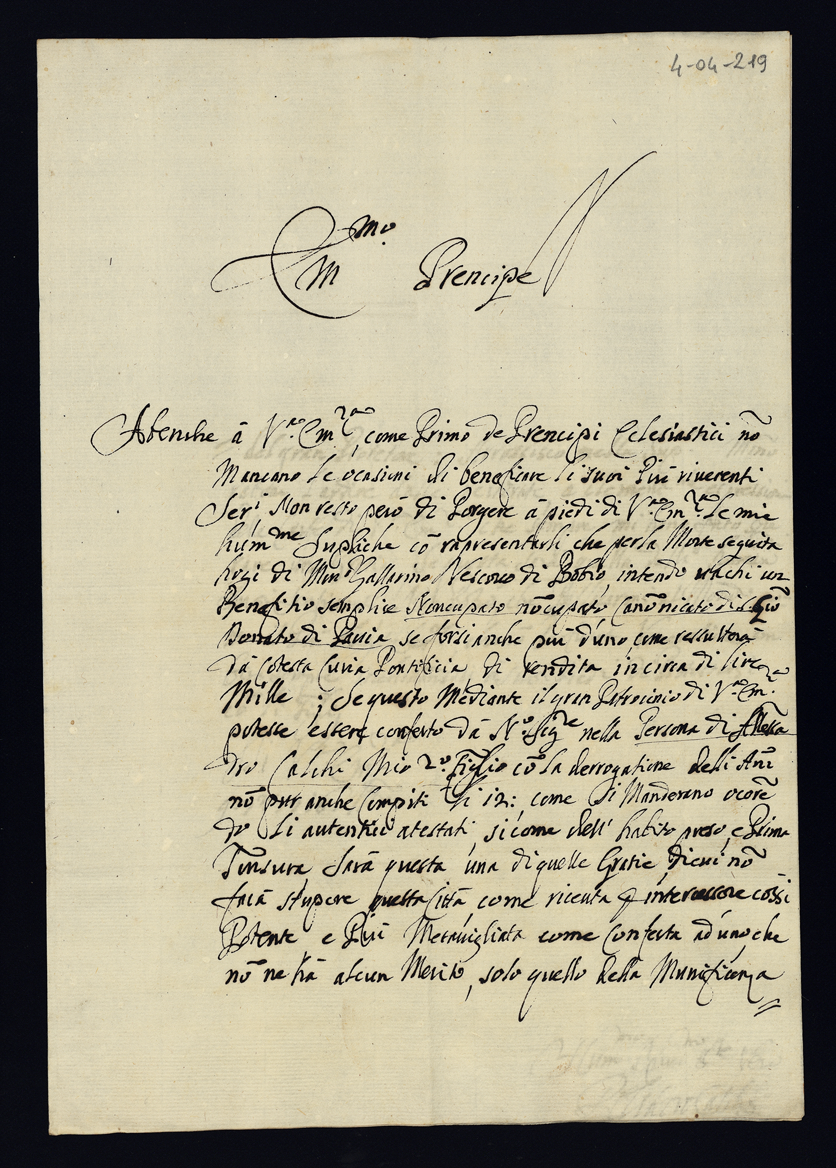 4-04-219
Em.mo Prencipe
Abenche à V.ra Em.za come Primo de Prencipi Eclesiastici nō
Mancano le ocasioni di beneficare li suoi Più riverenti
Ser.i Non resto però di Porgere à piedi di V.ra Em.za le mie
hum.me Supliche cō rapresentarli che per la Morte seguita
hogi di Mon.r Gallarino Vescovo di Bobio, intendo un
Benefitio semplice Noncupato nōcupato, Canōnicato di S. Giō
Donato di Pavia se forsi anche più d'uno come ressulterà
dà cotesta Curia Pontificia di rendita in circa di lire
Mille ; Se questo Mediante il gran Patrocinio di V.ra Em.za
potesse essere conferto dà N.ro Sig.re nella Persona di Alessa
dro Calchi Mio 2.o figlio cō la derrogatione delli Anī
nō pur anche Compiti di 12: come si Manderano ocorē
do li autentici atestati si come dell' habito preso, e Prima
Tonsura Sarà questa una di quelle Gratie di cui nō
farà stupore questa Città come ricevta p intercessore cossì
Potente e Più Meravigliata come Conferta ad uno che
nō ne hà alcun Merito, solo quello della Munificenza